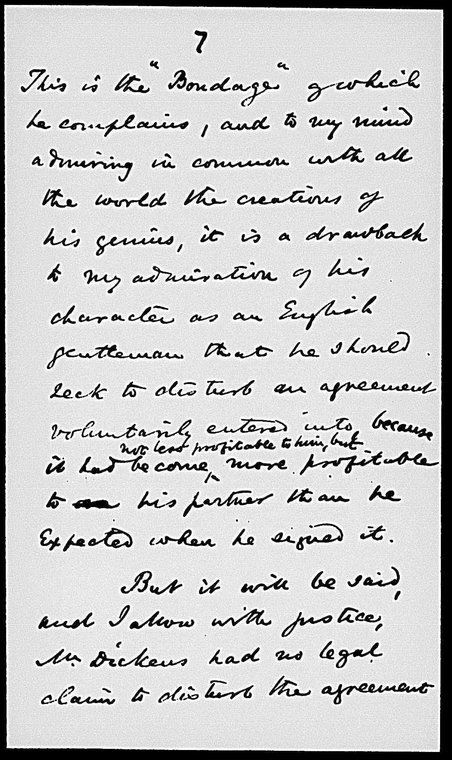 7
This is the "Bondage" of which
he complains, and to my mind
admiring in common with all
the world the creations of
his genius, it is a drawback
to my admiration of his
character as an English
gentleman that he should
seek to disturb an agreement
voluntarily entered into, because
not less profitable to him, but
it had become, more profitable
to his partner than he
Expected when he signed it.
But it will be said,
and I allow with justice,
Mr Dickens had no legal
claim to disturb the agreement